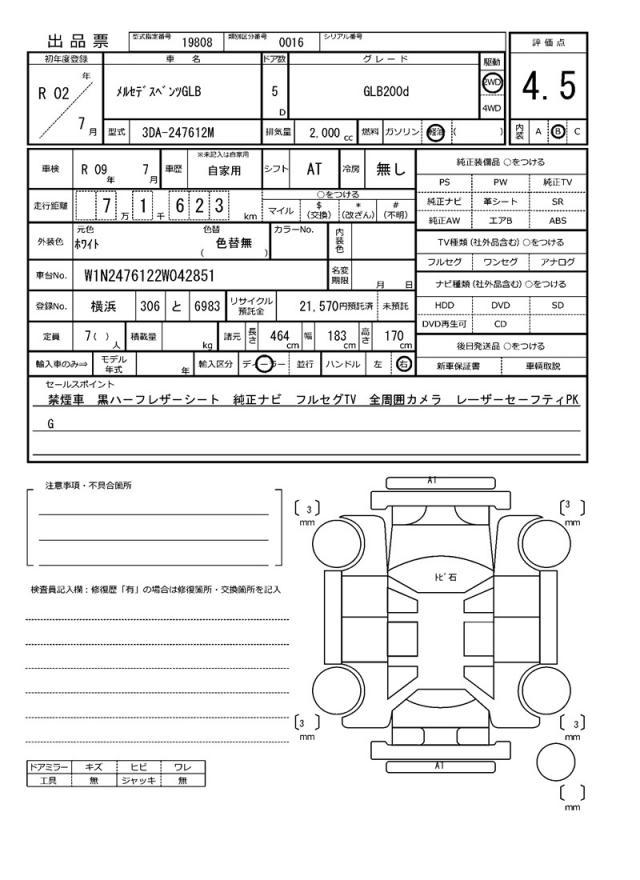 出品票 型式指定番号 19808 類別区分番号 0016 シリアル番号
評価点
4.5
内装 A B C
初年度登録 車名 ドア数 グレード 駆動
R 02 年 7 月 ﾒﾙｾﾃﾞｽﾍﾞﾝﾂGLB 5 D GLB200d 2WD
4WD
型式 3DA-247612M 排気量 2,000 cc 燃料 ガソリン 軽油 ( )
車検 R 09 年 7 月 車歴 ※未記入は自家用 自家用 シフト AT 冷房 無し
走行距離 7 万 1 千 6 2 3 km ○をつける
マイル $ (交換) * (改ざん) # (不明)
外装色 元色 ﾎﾜｲﾄ 色替 ( 色替無 ) カラーNo. 内装色
車台No. W1N2476122W042851 名変期限 月 日
登録No. 横浜 306 と 6983 リサイクル預託金 21,570円預託済 未預託
定員 7( ) 人 積載量 kg 諸元 長さ 464 cm 幅 183 cm 高さ 170 cm
輸入車のみ⇒ モデル年式 年 輸入区分 ディーラー 並行 ハンドル 左 右
純正装備品 ○をつける
PS PW 純正TV
純正ナビ 革シート SR
純正AW エアB ABS
TV種類 (社外品含む) ○をつける
フルセグ ワンセグ アナログ
ナビ種類 (社外品含む) ○をつける
HDD DVD SD
DVD再生可 CD
後日発送品 ○をつける
新車保証書 車輌取説
セールスポイント
禁煙車 黒ハーフレザーシート 純正ナビ フルセグTV 全周囲カメラ レーザーセーフティPK
G
注意事項・不具合箇所
検査員記入欄：修復歴「有」の場合は修復箇所・交換箇所を記入
ドアミラー キズ ヒビ ワレ
工具 無 ジャッキ 無
A1
[ 3 ] mm
[ 3 ] mm
ﾄﾋﾞ石
[ 3 ] mm
[ 3 ] mm
A1
[ ] mm